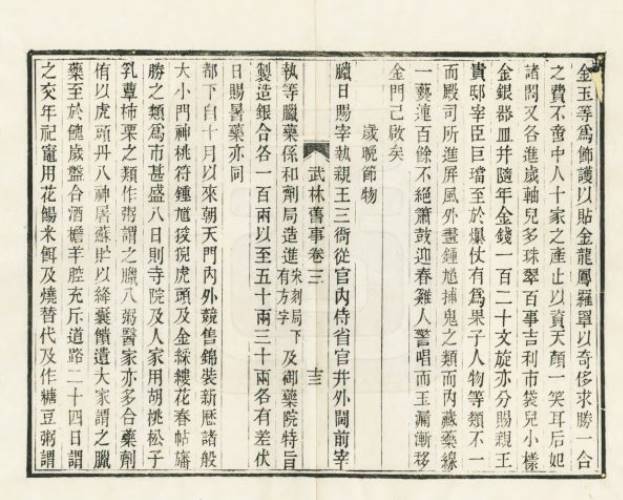 金玉等爲飾護以貼金龍鳳羅罩以奇侈求勝一合
之費不啻中人十家之產止以資天顏一笑耳后妃
諸閤又各進歲軸兒多珠翠百事吉利市袋兒小樣
金銀器皿并隨年金錢一百二十文旋亦分賜親王
貴邸宰臣巨璫至於爆仗有爲果子人物等類不一
而殿司所進屏風外畫鍾馗捕鬼之類而內藏藥線
一爇連百餘不絕簫鼓迎春雞人警唱而玉漏漸移
金門已啟矣
歲晚節物
臘日賜宰執親王三衙從官內侍省官并外閫前宰
執等臘藥係和劑局造進宋刻局下有方字及御藥院特旨
武林舊事卷三
十三
製造銀合各一百兩以至五十兩三十兩各有差伏
日賜暑藥亦同
都下自十月以來朝天門內外競售錦裝新曆諸般
大小門神桃符鍾馗狻猊虎頭及金綵縷花春帖旛
勝之類爲市甚盛八日則寺院及人家用胡桃松子
乳蕈柿栗之類作粥謂之臘八粥醫家亦多合藥劑
侑以虎頭丹八神屠蘇貯以絳囊饋遺大家謂之臘
藥至於饋歲盤合酒檐羊腔充斥道路二十四日謂
之交年祀竈用花餳米餌及燒替代及作糖豆粥謂